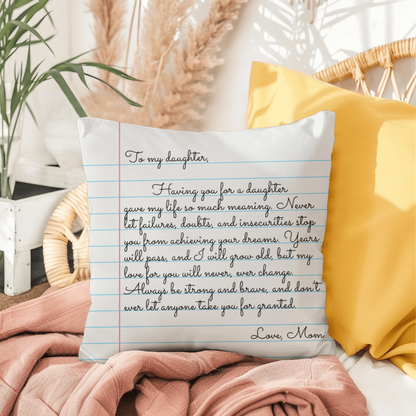 To my daughter,
Having you for a daughter
gave my life so much meaning. Never
let failures, doubts, and insecurities stop
you from achieving your dreams. Years
will pass, and I will grow old, but my
love for you will never, ever change.
Always be strong and brave, and don't
ever let anyone take you for granted.
Love, Mom